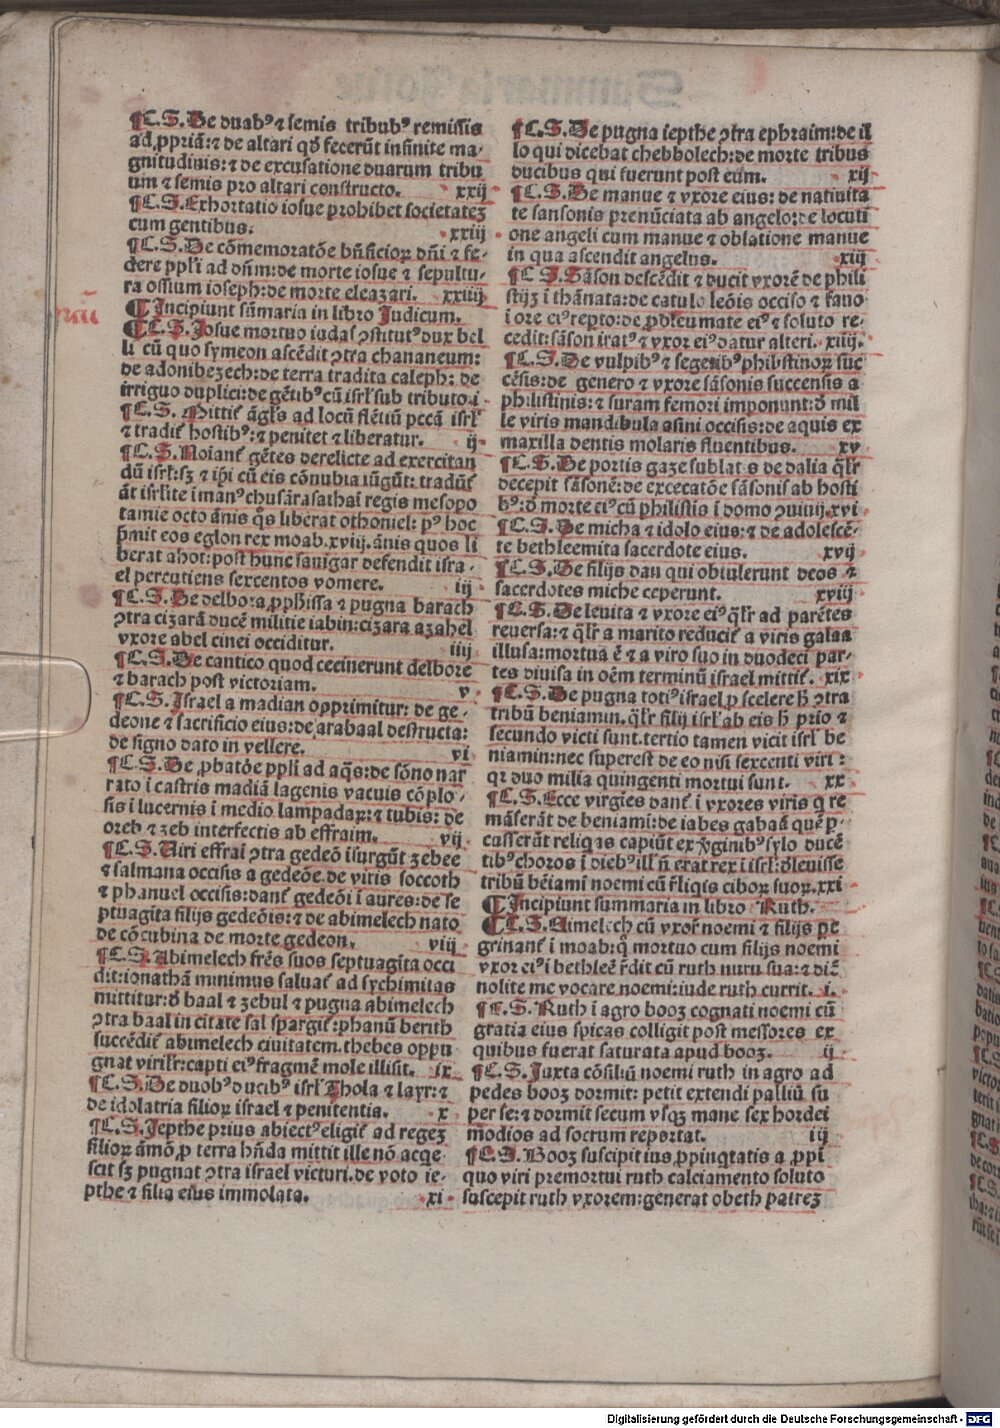 ¶C.S. De duabꝰ ⁊ semis tribubꝰ remissis
ad ꝓpriā:⁊ de altari qđ fecerūt infinite ma-
gnitudinis:⁊ de excusatione duarum tribu
um ⁊ semis pro altari constructo. xxij
¶C.S. Exhortatio iosue prohibet societatez
cum gentibus. xxiij
¶C.S. De cōmemoratōe bn̄ficioꝝ dn̄i ⁊ fe-
dere ppl'i ad dn̄m:de morte iosue ⁊ sepultu-
ra ossium ioseph:de morte eleazari. xxiiij
¶ Incipiunt sūmaria in libro Judicum.
¶C.S. Josue mortuo iudas ꝯstitutꝰ dux bel
li cū quo symeon ascēdit ꝯtra chananeum:
de adonibezech:de terra tradita caleph: de
irriguo duplici:de gētibꝰ cū isrl' sub tributo.i
¶C.S. Mittit' āgl's ad locū flētiū pccā isrl'
⁊ tradit' hostibꝰ:⁊ penitet ⁊ liberatur. ij
¶C.S. Noīant' gētes derelicte ad exercitan
dū isrl':sꝫ ⁊ ip̄i cū eis cōnubia iūgūt: tradūt'
āt isrl'ite ī manꝰ chusārasathai regis mesopo
tamie octo ānis q̄s liberat othoniel: pꝰ hoc
p̄mit eos eglon rex moab.xviij.ānis quos li
berat ahot:post hunc sauigar defendit isra-
el percutiens sexcentos vomere. iij
¶C.S. De delbora ꝓph̄issa ⁊ pugna barach
ꝯtra cizarā ducē militie iabin:cizara a zahel
vxore abel cinei occiditur. iiij
¶C.S. De cantico quod cecinerunt delbore
⁊ barach post victoriam. v
¶C.S. Israel a madian opprimitur: de ge-
deone ⁊ sacrificio eius:de arabaal destructa:
de signo dato in vellere. vi
¶C.S. De ꝓbatōe ppl'i ad aq̄s:de sōno nar
rato ī castris madiā lagenis vacuis cōplo-
sis ī lucernis ī medio lampadaꝝ:⁊ tubis: de
oreb ⁊ zeb interfectis ab effraim. vij
¶C.S. Viri effraī ꝯtra gedeō īsurgūt zebee
⁊ salmana occisis a gedeōe.de viris soccoth
⁊ phanuel occisis:dant' gedeōi ī aures:de se
ptuagīta filijs gedeōis:⁊ de abimelech nato
de cōcubina de morte gedeon. viij
¶C.S. Abimelech fr̄es suos septuagīta occi
dit:ionathā minimus saluat' ad sychimitas
mittitur:đ baal ⁊ zebul ⁊ pugna abimelech
ꝯtra baal in citate sal spargit':phanū berith
succēdit' abimelech ciuitatem.thebes oppu
gnat viril'r:capti eiꝰ fragmē mole illisit. ix
¶C.S. De duobꝰ ducibꝰ isrl' Thola ⁊ Iayr:⁊
de idolatria filioꝝ israel ⁊ penitentia. x
¶C.S. Jepthe prius abiectꝰ eligit' ad regez
filioꝝ āmō ꝓ terra hn̄da mittit ille nō acqe-
scit sꝫ pugnat ꝯtra israel victuri.de voto ie-
pthe ⁊ filia eius immolata. xi
¶C.S. De pugna iepthe ꝯtra ephraim:de il
lo qui dicebat chebbolech:de morte tribus
ducibus qui fuerunt post eum. xij
¶C.S. De manue ⁊ vxore eius: de natiuita
te sansonis prenūciata ab angelo:de locuti
one angeli cum manue ⁊ oblatione manue
in qua ascendit angelus. xiij
¶C.S. Sāson descēdit ⁊ ducit vxorē de phili
stijꝫ ī thānata:de catulo leōis occiso ⁊ fauo
ī ore eiꝰ reꝑto:de ꝓbleumate eiꝰ ⁊ soluto re-
cedit:sāson iratꝰ ⁊ vxor eiꝰ datur alteri. xiiij.
¶C.S. De vulpibꝰ ⁊ segetibꝰ philistinoꝝ suc
cēsis:de genero ⁊ vxore sāsonis succensis a
philistinis:⁊ suram femori imponunt:đ mil
le viris mandibula asini occisis:de aquis ex
maxilla dentis molaris fluentibus. xv
¶C.S. De portis gaze sublatis de dalia q̄l'r
decepit sāsonē:de excecatōe sāsonis ab hosti
bꝰ:đ morte eiꝰ cū philistis ī domo ꝯuiuij.xvi
¶C.S. De micha ⁊ idolo eius:⁊ de adolescē-
te bethleemita sacerdote eius. xvij
¶C.S. De filijs dan qui obtulerunt deos ⁊
sacerdotes miche ceperunt. xviij
¶C.S. De leuita ⁊ vxore eiꝰ q̄l'r ad parētes
reuersa:⁊ q̄l'r a marito reducit' a viris galaa
illusa:mortua ē ⁊ a viro suo in duodeci par-
tes diuisa in oēm terminū israel mittit'. xix
¶C.S. De pugna totiꝰ israel ꝓ scelere h̄ ꝯtra
tribū beniamin.q̄l'r filij isrl' ab eis h̄ prīo ⁊
secundo victi sunt.tertio tamen vicit isrl' be
niamin:nec superest de eo nisi sexcenti viri:
qꝛ duo milia quingenti mortui sunt. xx
¶C.S. Ecce virgīes dant' ī vxores viris q re
māserāt de beniamī:de iabes gabaā quē ꝑ-
cusserāt reliq̄as capiūt ex v̄ginibꝰ sylo ducē
tibꝰ choros ī diebꝰ ill' n̄ erat rex ī isrl':đ leuisse
tribū bēiamī noemi cū r̄liqis ciboꝝ suoꝝ.xxi
¶ Incipiunt summaria in libro Ruth.
¶C.S. Aimelech cū vxor̄ noemi ⁊ filijs pe
grinant' ī moab:q̄ mortuo cum filijs noemi
vxor eiꝰ ī bethleē r̄dit cū ruth nuru sua:⁊ dic̄
nolite me vocare noemi:iude ruth currit. i.
¶C.S. Ruth ī agro booz cognati noemi cū
gratia eius spicas colligit post messores ex
quibus fuerat saturata apud booz. ij
¶C.S. Juxta cōsiliū noemi ruth in agro ad
pedes booz dormit: petit extendi palliū su
per se:⁊ dormit secum vsqꝫ mane sex hordei
modios ad socrum reportat. iij
¶C.S. Booz suscipit ius ꝓpinqtatis a ꝓpi
quo viri premortui ruth calciamento soluto
suscepit ruth vxorem:generat obeth patrez
Digitalisierung gefördert durch die Deutsche Forschungsgemeinschaft - DFG